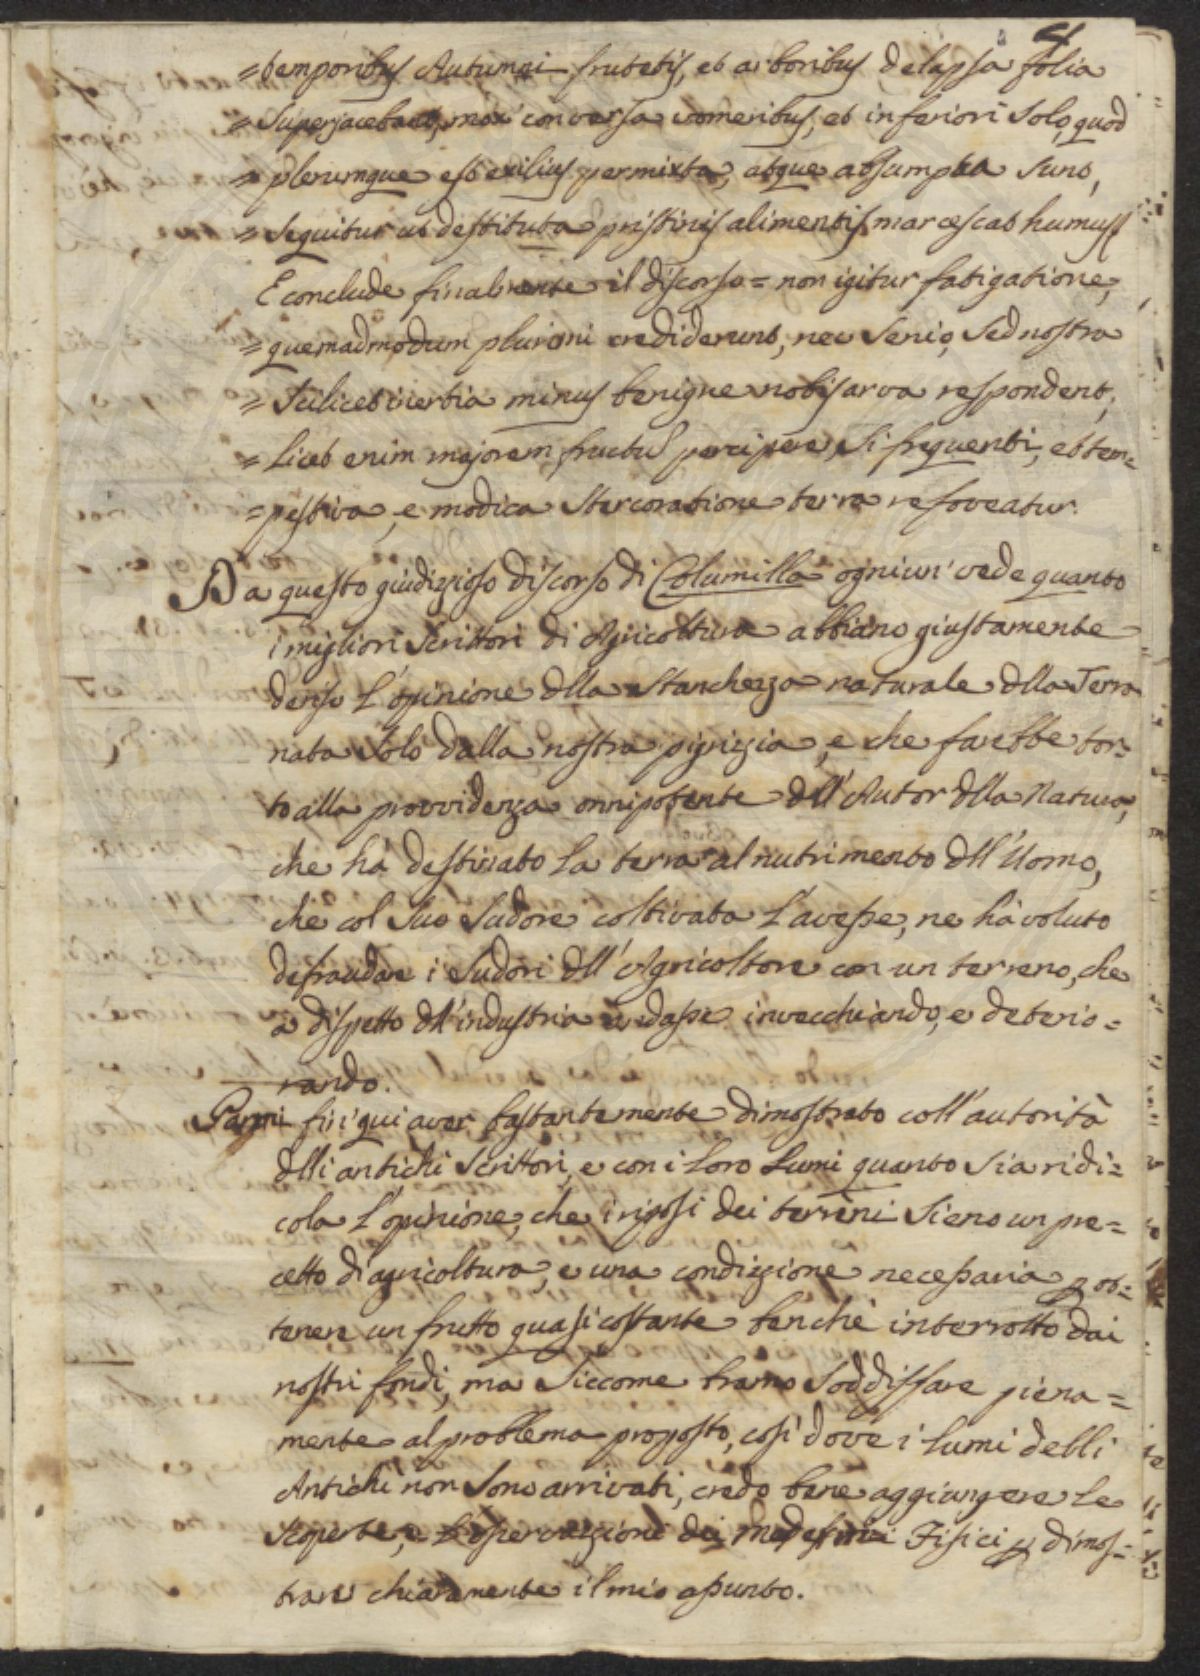 =temporibus Autumni frutetis, et arboribus delapsa folia
= superjacebant, mox conversa vomeribus, et inferiori solo, quod
= plerumque est exilius permixta, atque absumpta sunt,
= sequitur ut destituta pristinis alimentis marcescat humus
E conclude finalmente il discorso = non igitur fatigatione,
= quemadmodum plurimi crediderunt, nec senio, sed nostra
= scilicet inertia minus benigne nobis arva respondent,
= licet enim majorem fructus percipere, si frequenti, et tem=
=pestiva, e modica stercoratione terra refoveatur.
Da questo giudizioso discorso di Columilla ogniun' vede quanto
i migliori Scrittori di Agricoltura abbiano giustamente
deriso l'opinione dlla stanchezza naturale dlla Terra
nata solo dalla nostra pigrizia, e che farebbe tor=
to alla provvidenza onnipotente dll' Autor dlla Natura,
che hà destinato la terra al nutrimento dll' Uomo,
che col suo sudore coltivata l'avesse, ne hà voluto
defraudare i sudori dll' Agricoltore con un terreno, che
a dispetto dll' industria andasse invecchiando, e deterio=
rando.
Parmi fin' qui aver bastantemente dimostrato coll' autorità
dlli antichi Scrittori, e con i loro Lumi quanto sia ridi=
cola l'opinione, che i riposi dei terreni sieno un pre=
cetto di agricoltura, e una condizione necessaria p ot=
tenere un frutto quasi costante benchè interrotto dai
nostri fondi, ma siccome bramo soddisfare piena=
mente al problema proposto, così dove i lumi delli
Antichi non sono arrivati, credo bene aggiungere le
scoperte, e l'osservazioni dei modesimi Fisici p dimos=
trare chiaramente il mio assunto.